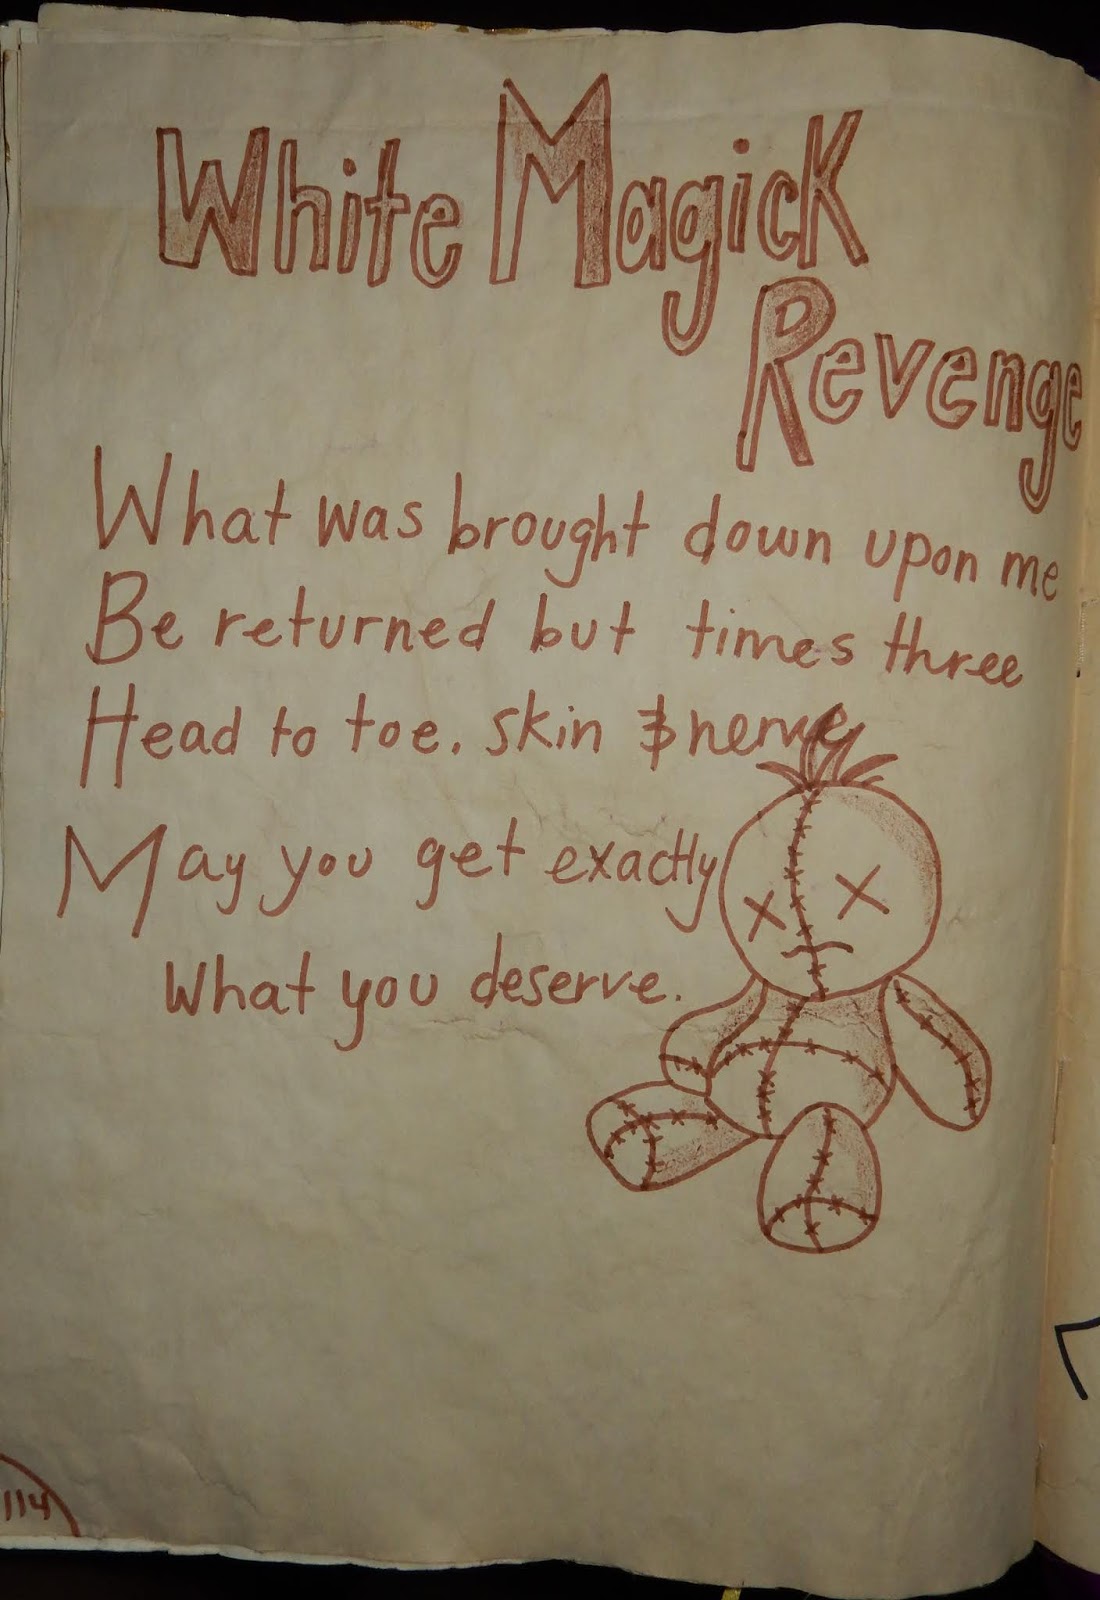 White Magick
Revenge
What was brought down upon me
Be returned but times three
Head to toe. skin & nerve
May you get exactly
what you deserve.
114